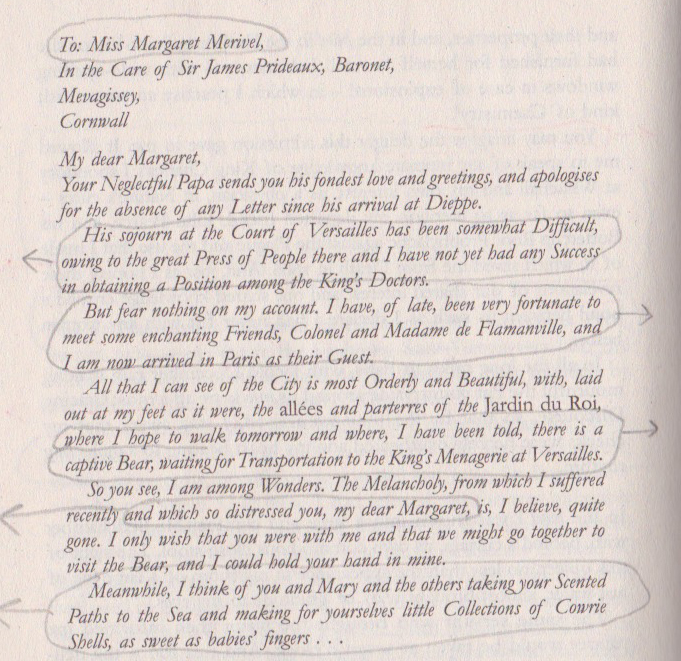 To: Miss Margaret Merivel,
In the Care of Sir James Prideaux, Baronet,
Mevagissey,
Cornwall
My dear Margaret,
Your Neglectful Papa sends you his fondest love and greetings, and apologises
for the absence of any Letter since his arrival at Dieppe.
His sojourn at the Court of Versailles has been somewhat Difficult,
owing to the great Press of People there and I have not yet had any Success
in obtaining a Position among the King's Doctors.
But fear nothing on my account. I have, of late, been very fortunate to
meet some enchanting Friends, Colonel and Madame de Flamanville, and
I am now arrived in Paris as their Guest.
All that I can see of the City is most Orderly and Beautiful, with, laid
out at my feet as it were, the allées and parterres of the Jardin du Roi,
where I hope to walk tomorrow and where, I have been told, there is a
captive Bear, waiting for Transportation to the King's Menagerie at Versailles.
So you see, I am among Wonders. The Melancholy, from which I suffered
recently and which so distressed you, my dear Margaret, is, I believe, quite
gone. I only wish that you were with me and that we might go together to
visit the Bear, and I could hold your hand in mine.
Meanwhile, I think of you and Mary and the others taking your Scented
Paths to the Sea and making for yourselves little Collections of Cowrie
Shells, as sweet as babies' fingers . . .